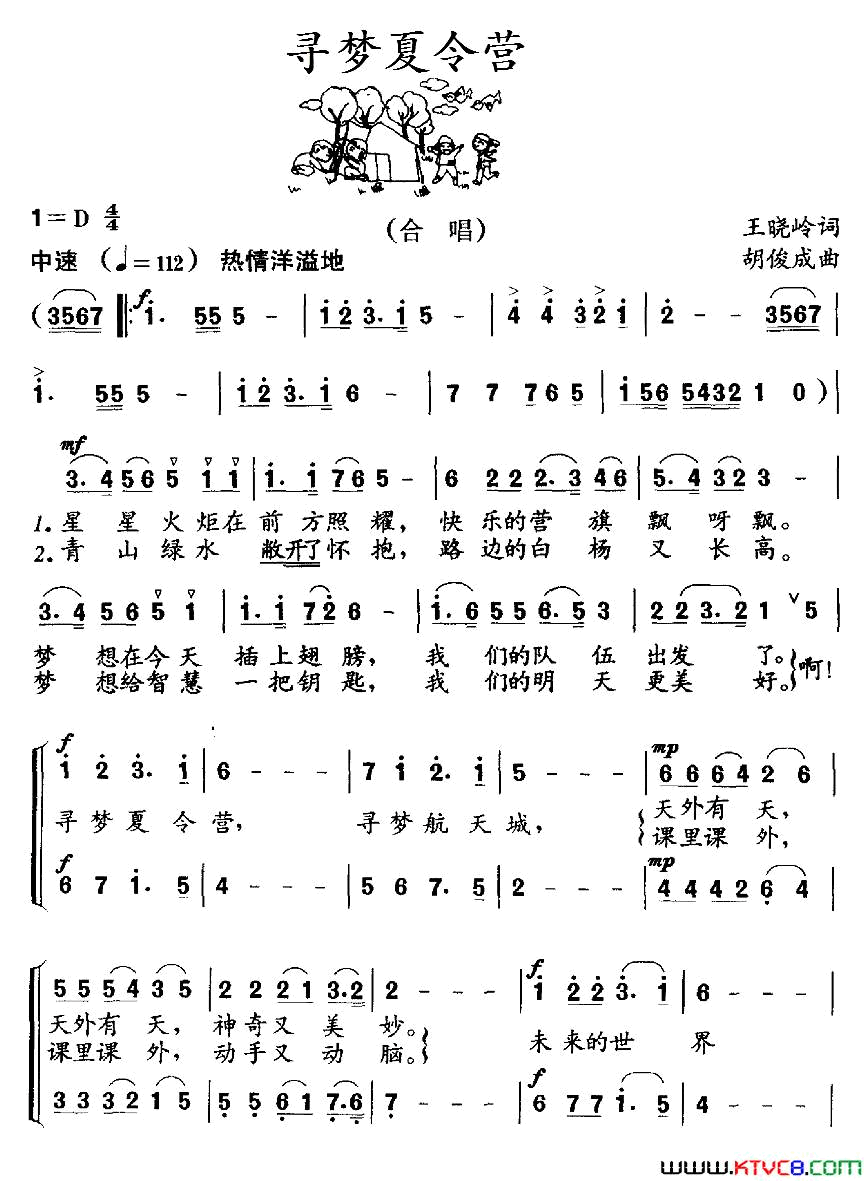 寻梦夏令营
1=D 4/4
(合 唱)
王晓岭词
中速 (♩=112) 热情洋溢地
胡俊成曲
f
(3567 1. 55 5 - | 1 2 3. 1 5 - | 4 4 3 2 1 | 2 - - 3567 |
1. 55 5 - | 1 2 3. 1 6 - | 7 7 7 6 5 | 156 5432 1 0 ) |
mf
3. 4 5 6 5 1 1 | 1. 1 7 6 5 - | 6 2 2 2. 3 4 6 | 5. 4 3 2 3 - |
1. 星 星 火 炬 在 前 方 照 耀, 快 乐 的 营 旗 飘 呀 飘。
2. 青 山 绿 水 敞开了 怀 抱, 路 边 的 白 杨 又 长 高。
3. 4 5 6 5 1 | 1. 1 7 2 6 - | 1. 6 5 5 6. 5 3 | 2 2 3. 2 1 ∨ 5 |
梦 想在今 天 插 上 翅 膀, 我 们的队 伍 出发 了。 啊!
梦 想给智 慧 一 把 钥 匙, 我 们的明 天 更美 好。
f
1 2 3. 1 | 6 - - - | 7 1 2. 1 | 5 - - - |
mp
6 6 6 4 2 6 |
寻 梦 夏 令 营, 寻 梦 航 天 城, 天外有 天,
课里课 外,
f
6 7 1. 5 | 4 - - - | 5 6 7. 5 | 2 - - - |
mp
4 4 4 2 6 4 |
5 5 5 4 3 5 | 2 2 2 1 3. 2 | 2 - - - |
f
1 2 2 3. 1 | 6 - - - |
天外有 天, 神 奇 又 美 妙。 未 来的世 界
课里课 外, 动 手 又 动 脑。
3 3 3 2 1 5 | 5 5 6 1 7. 6 | 7 - - - |
f
6 7 7 1. 5 | 4 - - - |
WWW.KTVC8.COM